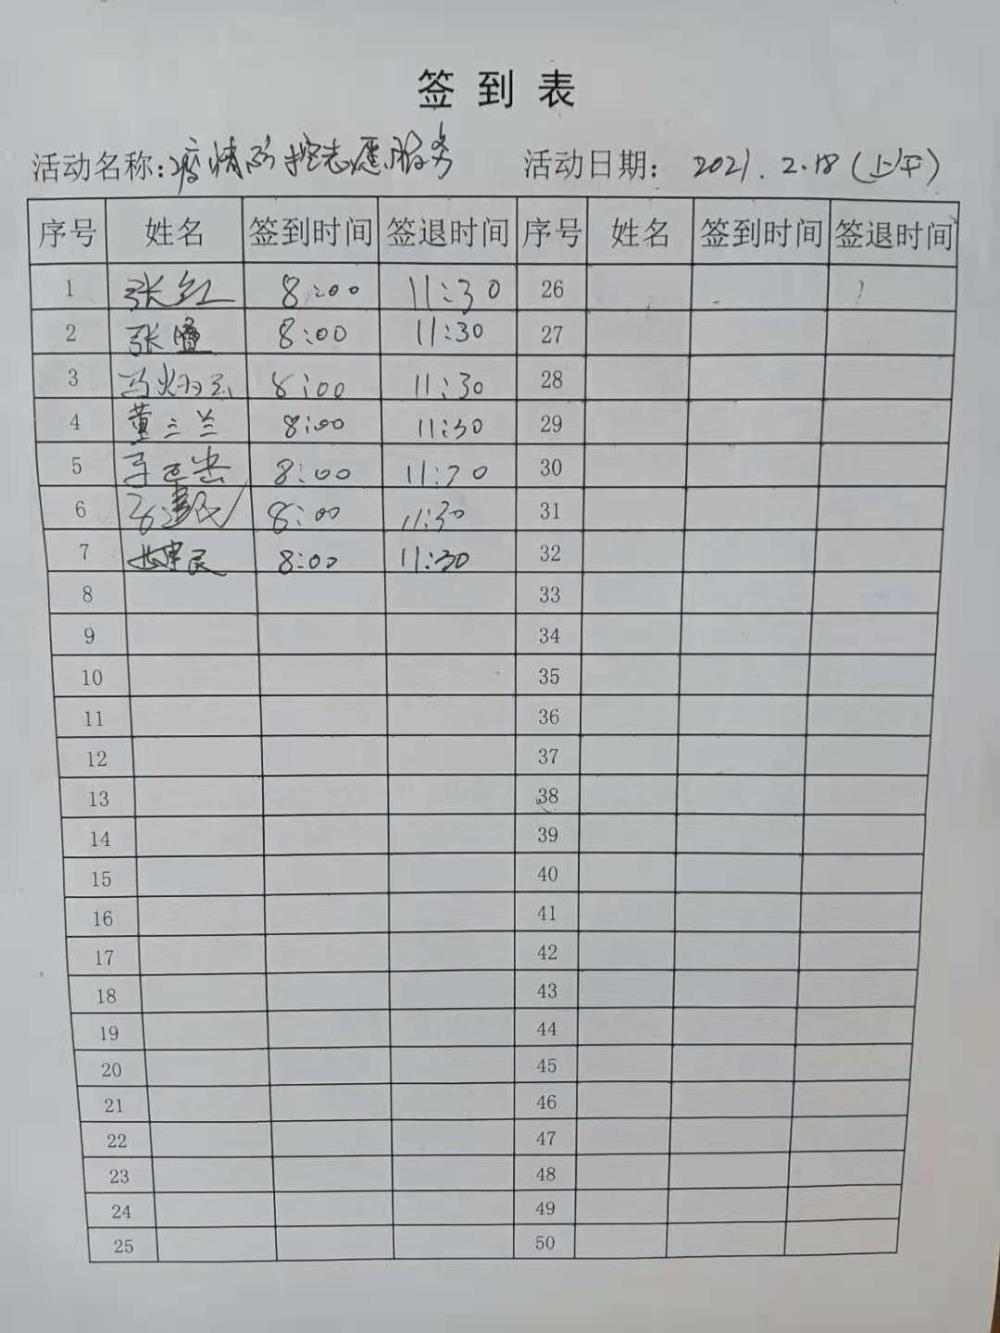 签到表
活动名称:疫情防控志愿服务 活动日期: 2021.2.18(上午)
序号 姓名 签到时间 签退时间 序号 姓名 签到时间 签退时间
1 张红 8:00 11:30 26
2 张 8:00 11:30 27
3 8:00 11:30 28
4 董兰兰 8:00 11:30 29
5 8:00 11:30 30
6 8:00 11:30 31
7 8:00 11:30 32
8 33
9 34
10 35
11 36
12 37
13 38
14 39
15 40
16 41
17 42
18 43
19 44
20 45
21 46
22 47
23 48
24 49
25 50